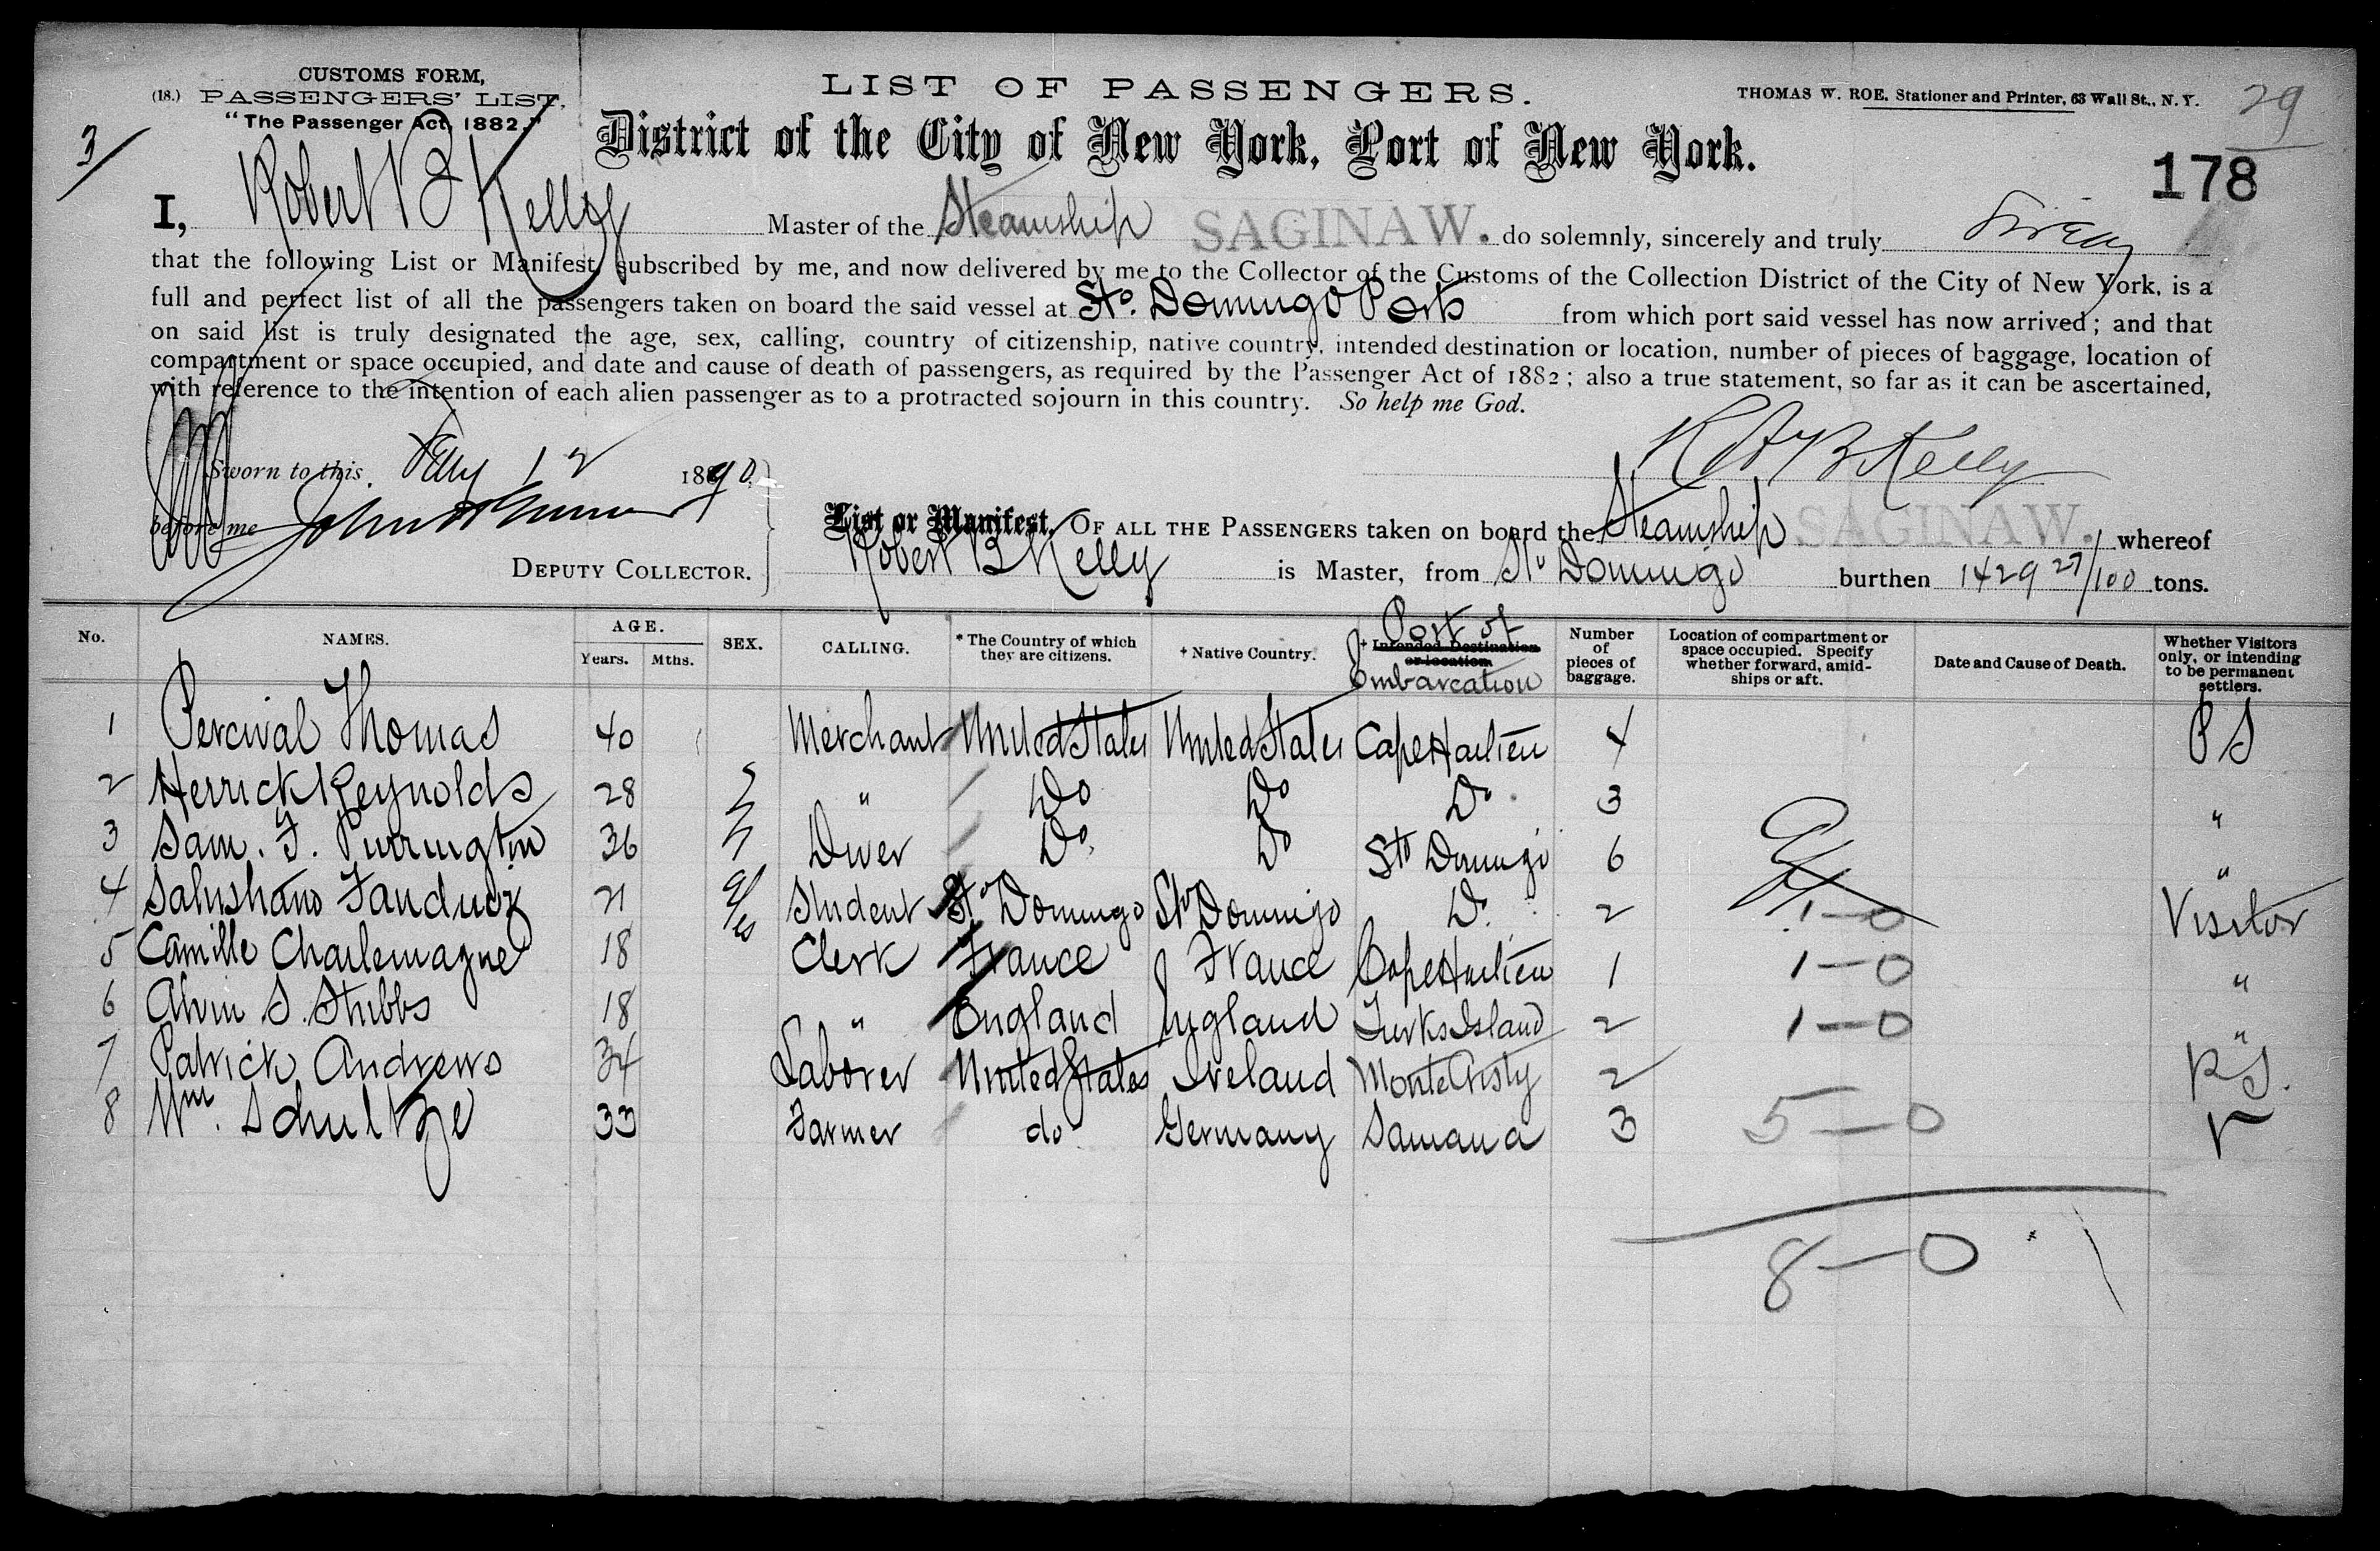 CUSTOMS FORM,
(18.) PASSENGERS' LIST,
"The Passenger Act, 1882."
LIST OF PASSENGERS.
THOMAS W. ROE, Stationer and Printer, 63 Wall St., N. Y.
29
3
District of the City of New York, Port of New York.
178
I, Robert B Kelly Master of the Steamship SAGINAW. do solemnly, sincerely and truly
that the following List or Manifest, subscribed by me, and now delivered by me to the Collector of the Customs of the Collection District of the City of New York, is a
full and perfect list of all the passengers taken on board the said vessel at Sto. Domingo Ports from which port said vessel has now arrived; and that
on said list is truly designated the age, sex, calling, country of citizenship, native country, intended destination or location, number of pieces of baggage, location of
compartment or space occupied, and date and cause of death of passengers, as required by the Passenger Act of 1882; also a true statement, so far as it can be ascertained,
with reference to the intention of each alien passenger as to a protracted sojourn in this country. So help me God.
Sworn to this 12 1890
R B Kelly
before me John
List or Manifest, OF ALL THE PASSENGERS taken on board the Steamship SAGINAW. whereof
DEPUTY COLLECTOR.
Robert B Kelly is Master, from Sto Domingo burthen 1429 27/100 tons.
No. NAMES. AGE. Years. Mths. SEX. CALLING. * The Country of which they are citizens. + Native Country. + Intended Destination or location. Port of Embarcation Number of pieces of baggage. Location of compartment or space occupied. Specify whether forward, amidships or aft. Date and Cause of Death. Whether Visitors only, or intending to be permanent settlers.
1 Percival Thomas 40 Merchant United States United States Cape Haitien 4 P S
2 Herrick Reynolds 28 " Do Do Do 3 "
3 Sam. F. Purrington 36 Diver Do Do Sto Domingo 6 "
4 21 Student Sto Domingo Sto Domingo Do 2 1-0 Visitor
5 Camille Charlemagne 18 Clerk France France Cape Haitien 1 1-0 "
6 Alvin S. Stubbs 18 " England England Turks Island 2 1-0 "
7 Patrick Andrews 34 Laborer United States Ireland Monte Cristy 2 P S.
8 Wm. Schultze 33 Farmer do Germany Samana 3 5-0 V
8-0